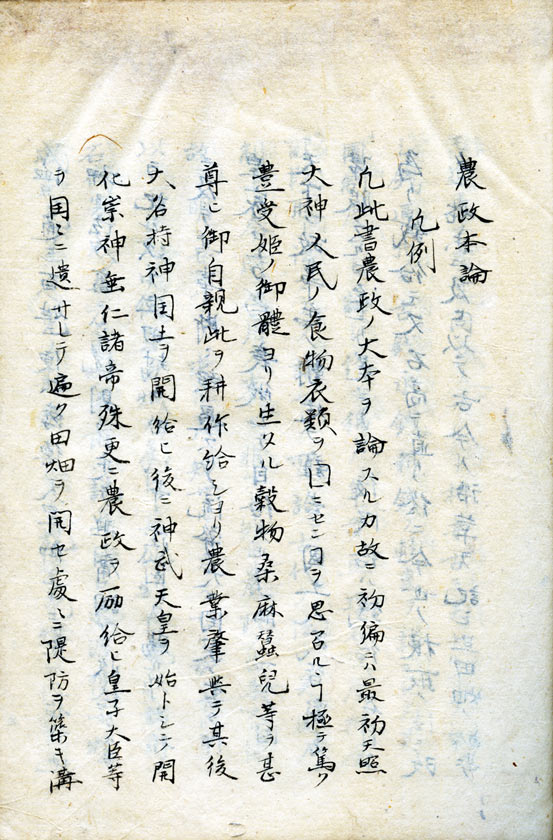 農政本論
凡例
凡此書農政ノ大本ヲ論スルカ故ニ初編ニハ最初天照
大神人民ノ食物衣類ヲ口ニセンヿヲ思召ルヽヿ極テ篤ク
豊受姫ノ御體ヨリ生スル穀物桑麻蠶兒等ヲ甚
尊ヒ御自親此ヲ耕作給シヨリ農業肇興テ其後
大谷持神国土ヲ開給ヒ後ニ神武天皇ヲ始トシテ開
化崇神垂仁諸帝殊更ニ農政ヲ励給ヒ皇子大臣等
ヲ国〻ニ遣サレテ遍ク田畑ヲ開セ處〻ニ隄防ヲ築キ溝